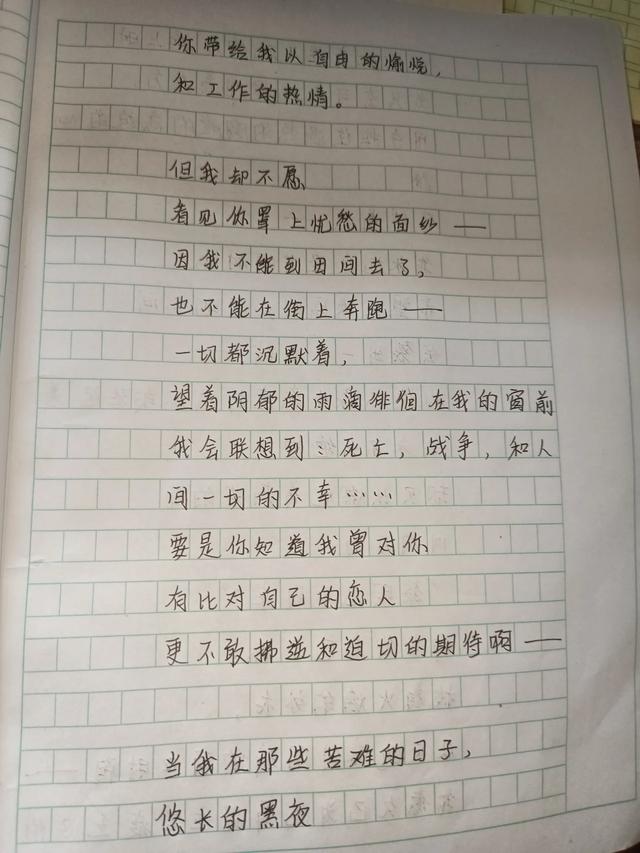 你带给我以自由的愉悦，
和工作的热情。
但我却不愿
看见你罩上忧愁的面纱——
因我不能到田间去了，
也不能在街上奔跑——
一切都沉默着，
望着阴郁的雨滴徘徊在我的窗前
我会联想到：死亡，战争，和人
间一切的不幸……
要是你知道我曾对你
有比对自己的恋人
更不敢拂逆和迫切的期待啊——
当我在那些苦难的日子，
悠长的黑夜